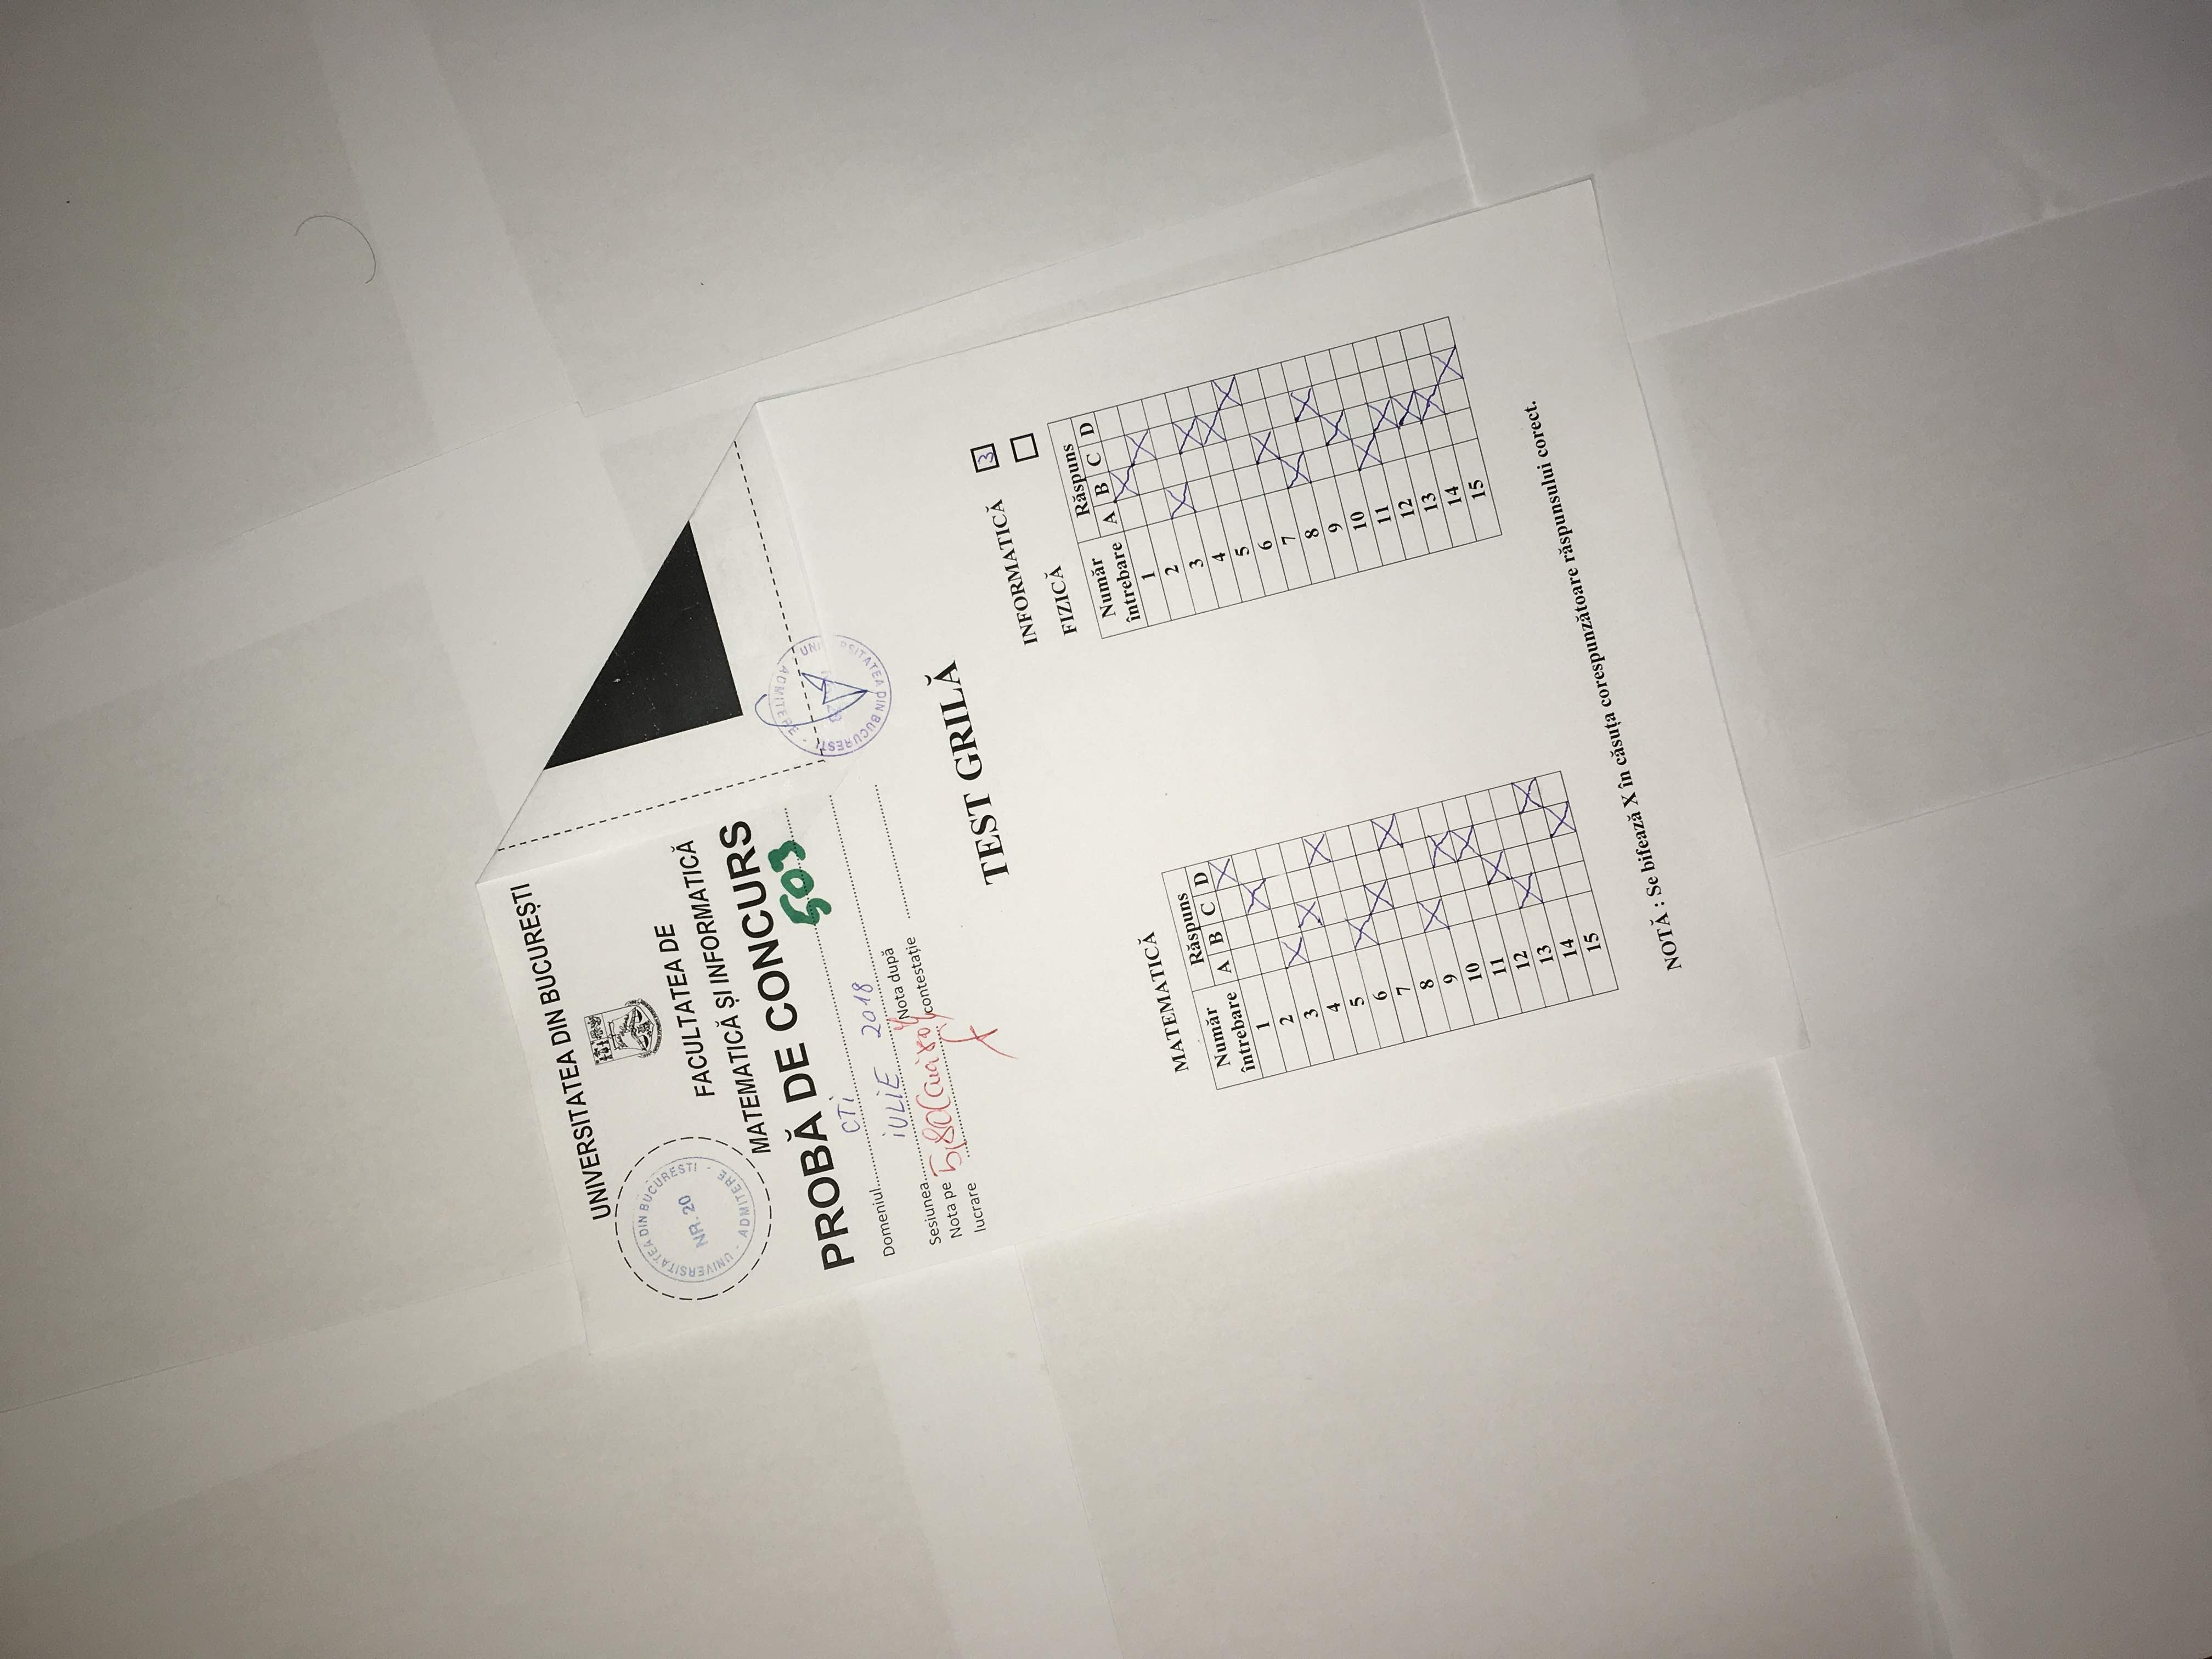 UNIVERSITATEA DIN BUCUREȘTI
UNIVERSITATEA DIN BUCURESTI - ADMITERE -
NR. 20
FACULTATEA DE
MATEMATICĂ ȘI INFORMATICĂ
PROBĂ DE CONCURS
503
Domeniul CTi
Sesiunea iULiE 2018
Nota pe lucrare 5,80
Nota după contestație
DIN BUCURESTI
ADMITERE
TEST GRILĂ
INFORMATICĂ 3
FIZICĂ
MATEMATICĂ
Număr întrebare Răspuns
A B C D
1
2
3
4
5
6
7
8
9
10
11
12
13
14
15
Număr întrebare Răspuns
A B C D
1
2
3
4
5
6
7
8
9
10
11
12
13
14
15
NOTĂ : Se bifează X în căsuța corespunzătoare răspunsului corect.